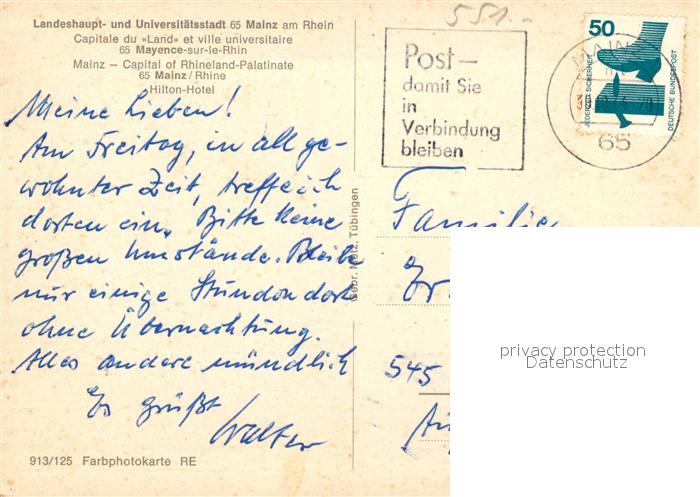 Landeshaupt- und Universitätsstadt 65 Mainz am Rhein
Capitale du «Land» et ville universitaire
65 Mayence-sur-le-Rhin
Mainz — Capital of Rhineland-Palatinate
65 Mainz / Rhine
Hilton-Hotel
Meine Lieben!
Am Freitag, in all ge-
wohnter Zeit, treffe ich
dorten ein. Bitte keine
großen Umstände. Bleibe
nur einige Stunden dort
ohne Übernachtung.
Alles andere mündlich
Es grüßt
Walter
913/125 Farbphotokarte RE
Gebr. Metz, Tübingen
551.-
Post —
damit Sie
in
Verbindung
bleiben
65
50
JEDERZEIT SICHERHEIT
DEUTSCHE BUNDESPOST
Familie
545
privacy protection
Datenschutz